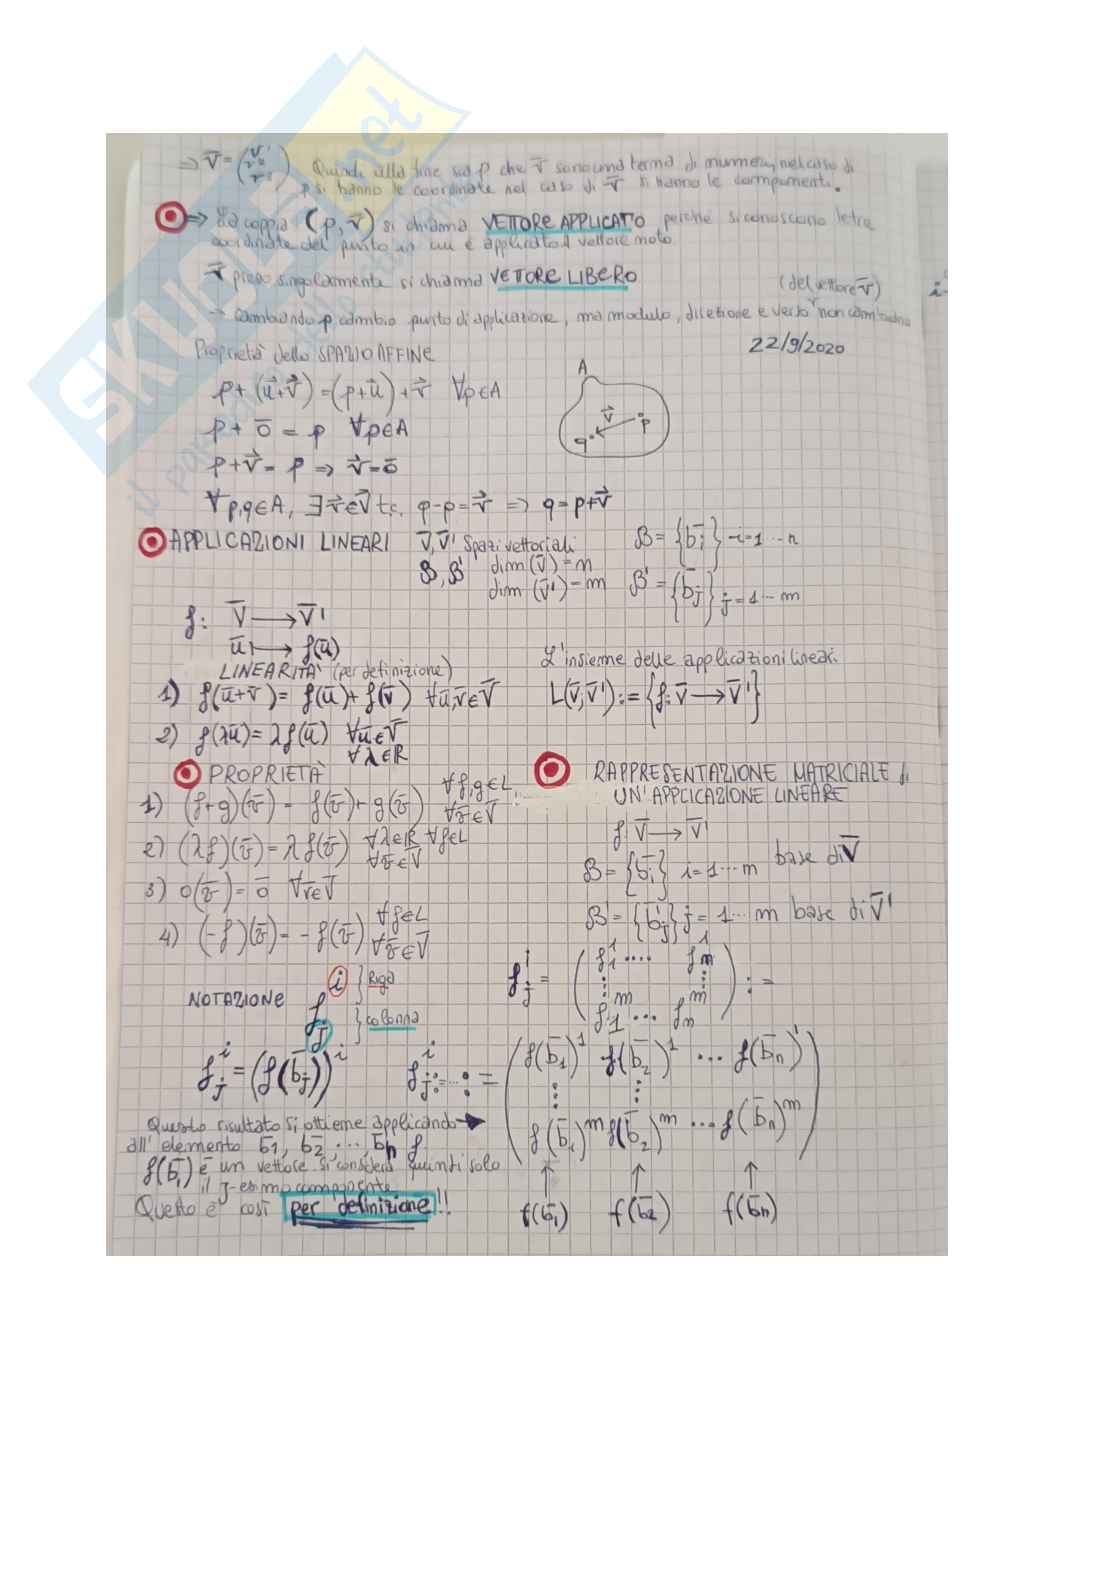 SKUOLA.net
⇒ v̅ = (v¹ v² v³) Quindi alla fine sia p che v̅ sono una terna di numeri, nel caso di
p si hanno le coordinate nel caso di v̅ si hanno le componenti.
⇒ La coppia (p, v⃗) si chiama VETTORE APPLICATO perché si conoscono le tre
coordinate del punto in cui è applicato il vettore moto
v⃗ preso singolarmente si chiama VETTORE LIBERO
(del vettore v̅)
→ cambiando p, cambio punto di applicazione, ma modulo, direzione e verso non cambiano
22/9/2020
Proprietà dello SPAZIO AFFINE
p + (u⃗+v⃗) = (p+u⃗) + v⃗ ∀p∈A
p + o̅ = p ∀p∈A
p + v⃗ = p ⇒ v⃗ = o̅
∀p,q∈A, ∃ v⃗∈V̅ t.c. q-p = v⃗ ⇒ q = p+v⃗
A
v⃗
p
q
APPLICAZIONI LINEARI V̅, V̅' spazi vettoriali B = {b̅i} i=1...n
B, B' dim(V̅) = n
dim(V̅') = m B' = {b̅j} j=1...m
f: V̅ → V̅'
u̅ ↦ f(u̅)
LINEARITA' (per definizione)
1) f(u̅+v̅) = f(u̅) + f(v̅) ∀u̅,v̅∈V̅
2) f(λu̅) = λf(u̅) ∀u̅∈V̅
∀λ∈ℝ
L'insieme delle applicazioni lineari.
L(V̅;V̅') := {f: V̅ → V̅'}
PROPRIETÀ
1) (f+g)(v̅) = f(v̅) + g(v̅) ∀f,g∈L
∀v̅∈V̅
2) (λf)(v̅) = λf(v̅) ∀λ∈ℝ ∀f∈L
∀v̅∈V̅
3) o(v̅) = o̅ ∀v̅∈V̅
4) (-f)(v̅) = -f(v̅) ∀f∈L
∀v̅∈V̅
RAPPRESENTAZIONE MATRICIALE di
UN'APPLICAZIONE LINEARE
f: V̅ → V̅'
B = {b̅i} i=1...m base di V̅
B' = {b̅'j} j=1...m base di V̅'
NOTAZIONE f i j } Riga
} colonna
fⁱj = (f¹₁ .... f¹n
⋮ ⋮
fᵐ₁ ... fᵐn) :=
fⁱj = (f(b̅j))ⁱ
fⁱj := ... := (f(b̅₁)¹ f(b̅₂)¹ ... f(b̅n)¹
⋮ ⋮
f(b̅₁)ᵐ f(b̅₂)ᵐ ... f(b̅n)ᵐ)
↑ ↑ ↑
f(b̅₁) f(b̅₂) f(b̅n)
Questo risultato si ottiene applicando →
all'elemento b̅1, b̅2 ... b̅n f
f(b̅i) è un vettore si considera quindi solo
il j-esimo componente
Questo è così per definizione!!